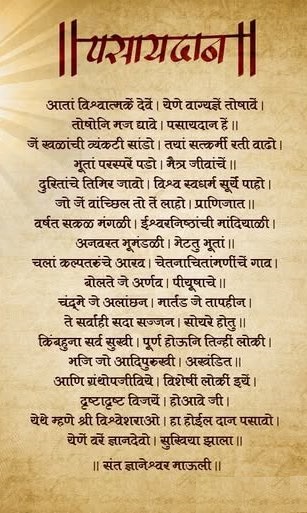 ॥पसायदान॥
आतां विश्वात्मकें देवें। येणे वाग्यज्ञें तोषावें।
तोषोनि मज द्यावे। पसायदान हें॥
जें खळांची व्यंकटी सांडो। तयां सत्कर्मी रती वाढो।
भूतां परस्परें पडो। मैत्र जीवांचें॥
दुरितांचे तिमिर जावो। विश्व स्वधर्म सूर्ये पाहो।
जो जें वांच्छिल तो तें लाहो। प्राणिजात॥
वर्षत सकळ मंगळी। ईश्वरनिष्ठांची मांदियाळी।
अनवरत भूमंडळी। भेटतु भूतां॥
चलां कल्पतरुंचे आरव। चेतनाचिंतामणींचें गाव।
बोलते जे अर्णव। पीयूषाचे॥
चंद्रमे जे अलांछन। मार्तंड जे तापहीन।
ते सर्वांही सदा सज्जन। सोयरे होतु॥
किंबहुना सर्व सुखी। पूर्ण होऊनि तिन्हीं लोकी।
भजि जो आदिपुरुखी। अखंडित॥
आणि ग्रंथोपजीविये। विशेषीं लोकीं इयें।
दृष्टादृष्ट विजयें। होआवे जी।
येथे म्हणे श्री विश्वेशराओ। हा होईल दान पसावो।
येणें वरें ज्ञानदेवो। सुखिया झाला॥
॥ संत ज्ञानेश्वर माऊली॥